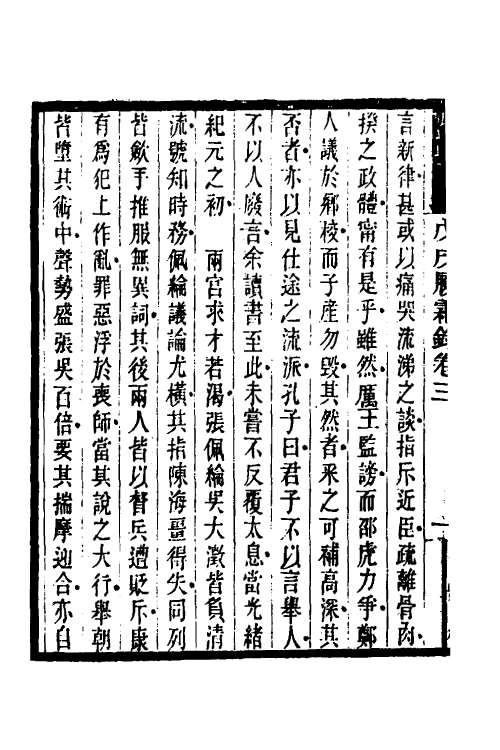 戊戌履霜錄卷三
言新律甚或以痛哭流涕之談指斥近臣疏離骨肉
揆之政體甯有是乎雖然厲王監謗而邵虎力爭鄭
人議於鄉校而子產勿毀其然者采之可補高深其
否者亦以見仕途之流派孔子曰君子不以言舉人
不以人廢言余讀書至此未嘗不反覆太息當光緒
紀元之初　兩宮求才若渴張佩綸吳大澂皆負清
流號知時務佩綸議論尤橫其指陳海畺得失同列
皆歛手推服無異詞其後兩人皆以督兵遭貶斥康
有爲犯上作亂罪惡浮於喪師當其說之大行舉朝
皆墮其術中聲勢盛張吳百倍要其揣摩迎合亦自